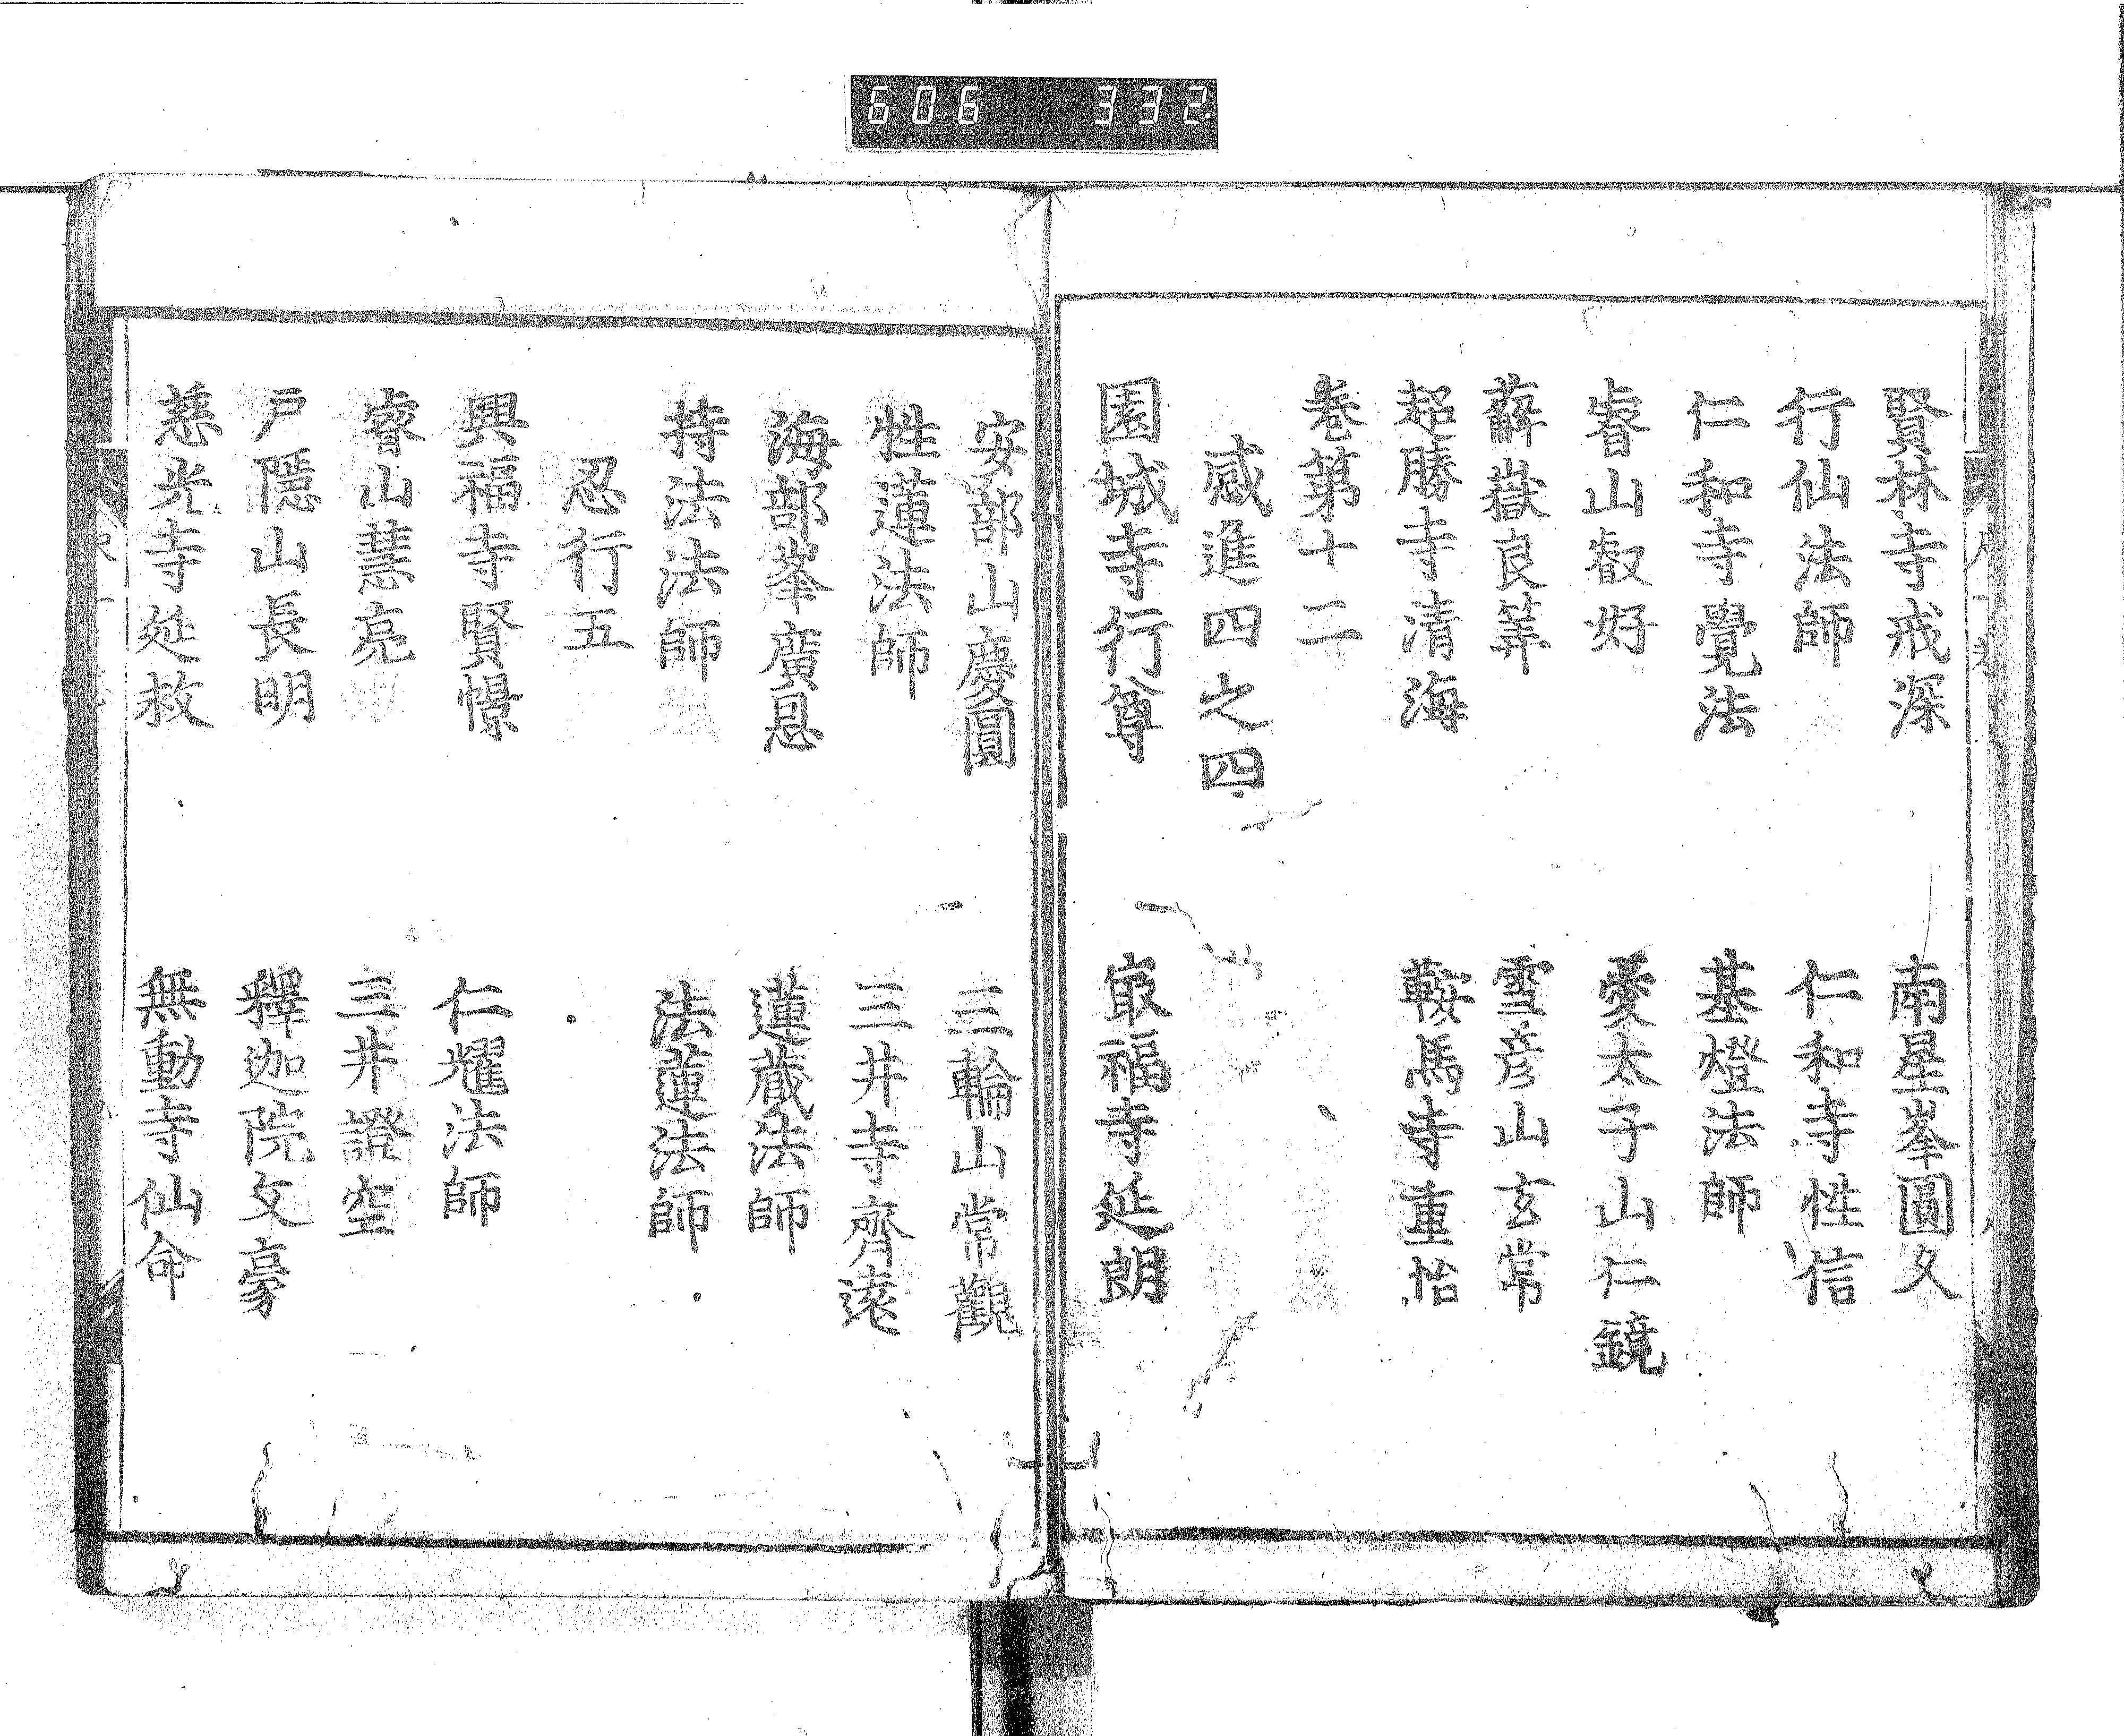 606 332
賢林寺戒深 南星峯圓久
行仙法師 仁和寺性信
仁和寺覺法 基燈法師
睿山叡好 愛太子山仁鏡
薜嶽良筭 雪彦山玄常
超勝寺清海 鞍馬寺重怡
卷第十二
感進四之四
園城寺行尊 㝡福寺延朗
安部山慶圓 三輪山常觀
牲蓮法師 三井寺齊遠
海部峯廣恩 蓮蔵法師
持法法師 法蓮法師
忍行五
興福寺賢憬 仁耀法師
睿山慧亮 三井證空
戸隱山長明 釋迦院文豪
慈光寺延救 無動寺仙命